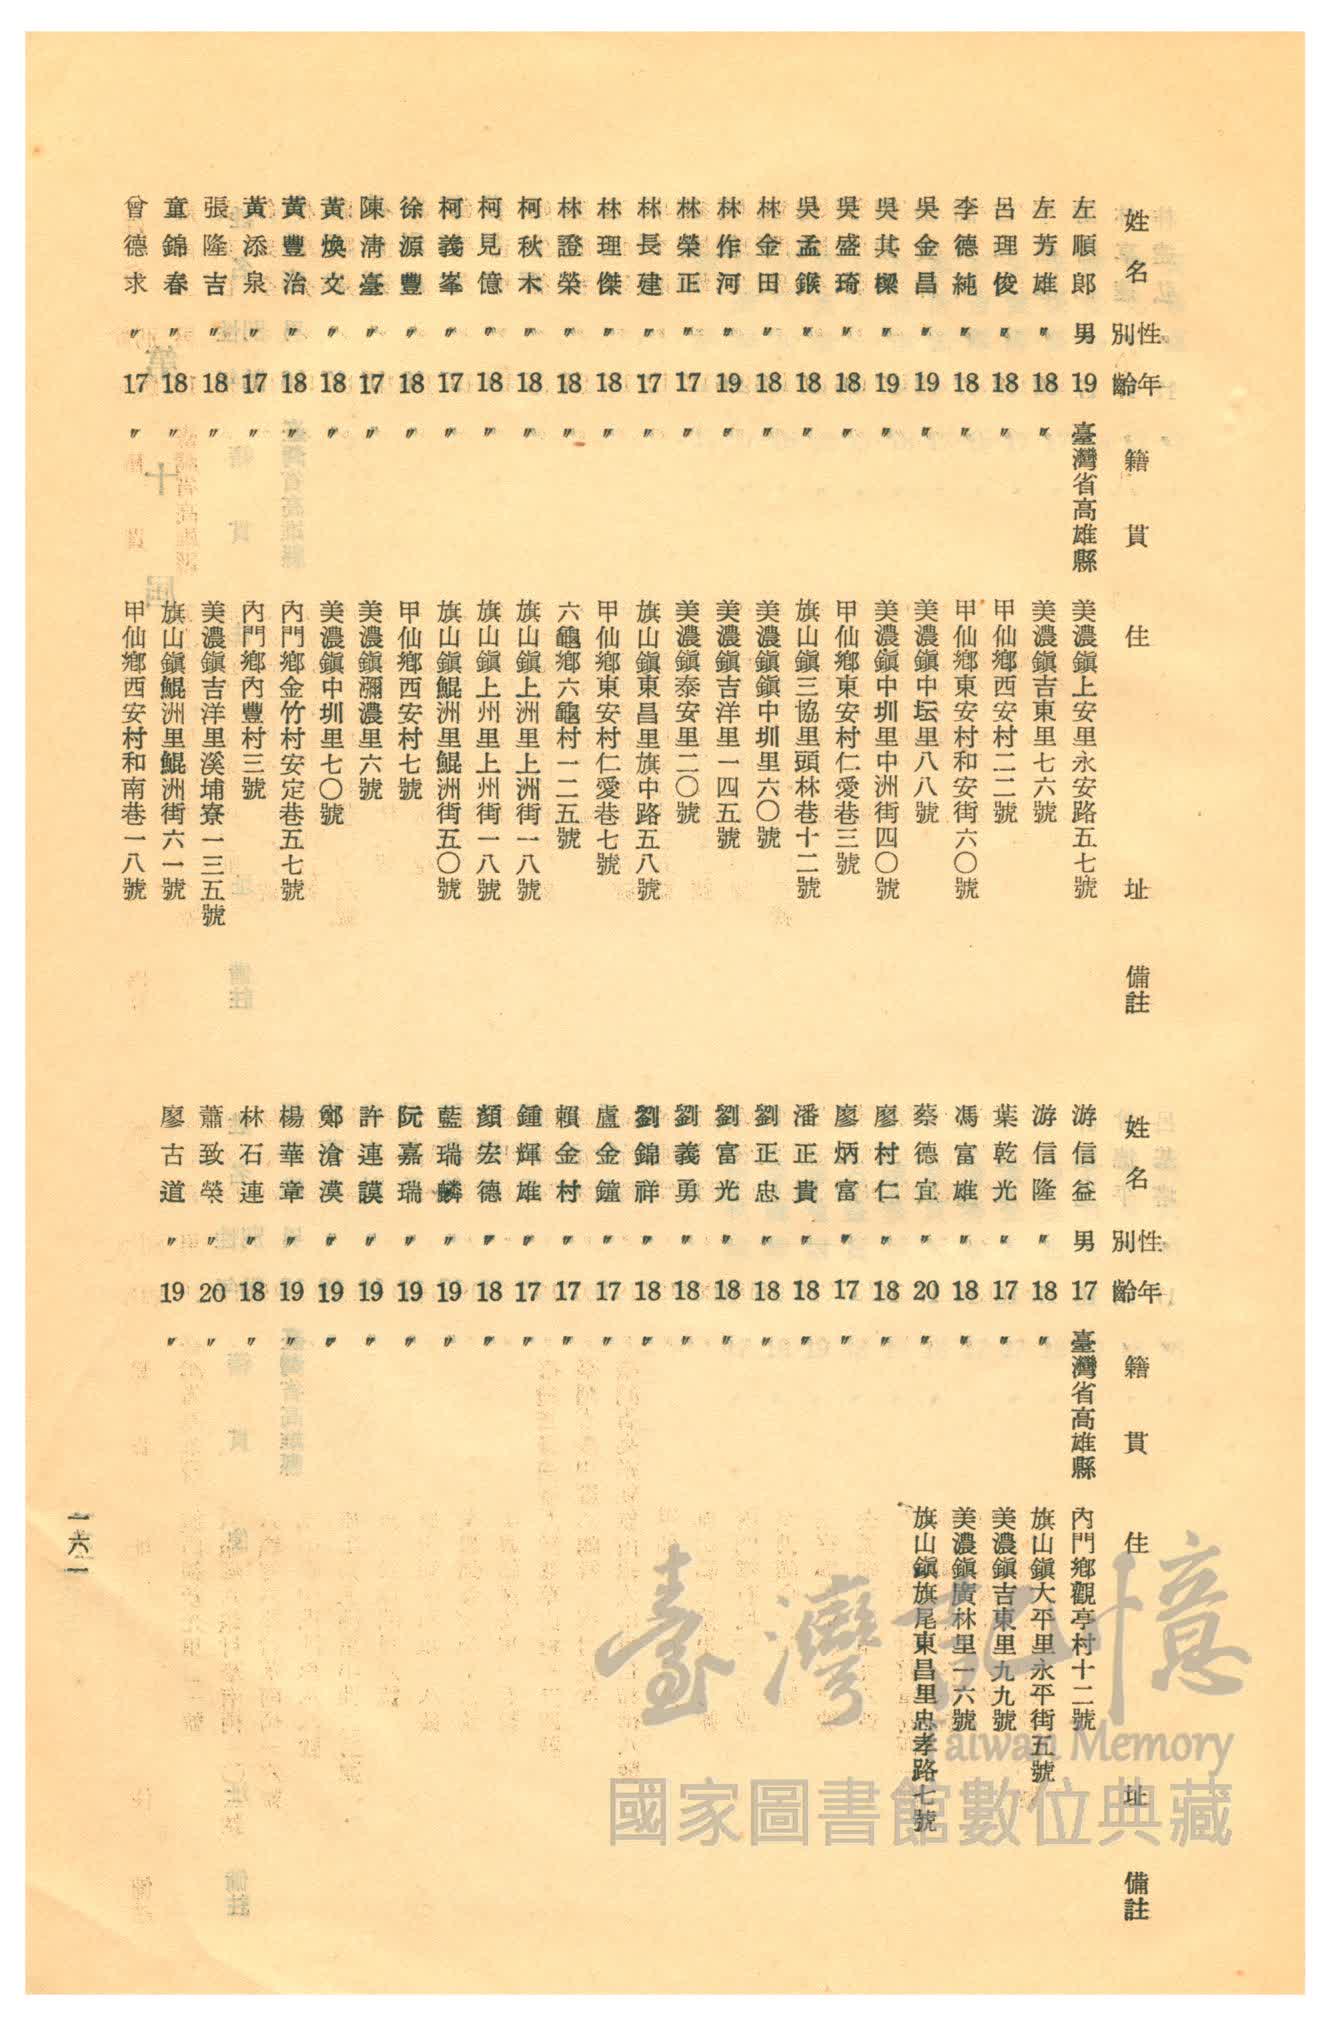 姓名 性別 年齡 籍貫 住址 備註
左順郎 男 19 臺灣省高雄縣 美濃鎭上安里永安路五七號
左芳雄 〃 18 〃 美濃鎭吉東里七六號
呂理俊 〃 18 〃 甲仙鄕西安村二二號
李德純 〃 18 〃 甲仙鄕東安村和安街六〇號
吳金昌 〃 19 〃 美濃鎭中坛里八八號
吳其樑 〃 19 〃 美濃鎭中圳里中洲街四〇號
吳盛琦 〃 18 〃 甲仙鄕東安村仁愛巷三號
吳孟鍭 〃 18 〃 旗山鎭三協里頭林巷十二號
林金田 〃 18 〃 美濃鎭鎭中圳里六〇號
林作河 〃 19 〃 美濃鎭吉洋里一四五號
林榮正 〃 17 〃 美濃鎭泰安里二〇號
林長建 〃 17 〃 旗山鎭東昌里旗中路五八號
林理傑 〃 18 〃 甲仙鄕東安村仁愛巷七號
林證榮 〃 18 〃 六龜鄕六龜村一二五號
柯秋木 〃 18 〃 旗山鎭上洲里上洲街一八號
柯見億 〃 18 〃 旗山鎭上州里上州街一八號
柯義峯 〃 17 〃 旗山鎭鯤洲里鯤洲街五〇號
徐源豐 〃 18 〃 甲仙鄕西安村七號
陳淸臺 〃 17 〃 美濃鎭瀰濃里六號
黃煥文 〃 18 〃 美濃鎭中圳里七〇號
黃豐治 〃 18 〃 內門鄕金竹村安定巷五七號
黃添泉 〃 17 〃 內門鄕內豐村三號
張隆吉 〃 18 〃 美濃鎭吉洋里溪埔寮一三五號
童錦春 〃 18 〃 旗山鎭鯤洲里鯤洲街六一號
曾德求 〃 17 〃 甲仙鄕西安村和南巷一八號
姓名 性別 年齡 籍貫 住址 備註
游信益 男 17 臺灣省高雄縣 內門鄕觀亭村十二號
游信隆 〃 18 〃 旗山鎭大平里永平街五號
葉乾光 〃 17 〃 美濃鎭吉東里九九號
馮富雄 〃 18 〃 美濃鎭廣林里一六號
蔡德宜 〃 20 〃 旗山鎭旗尾東昌里忠孝路七號
廖村仁 〃 18 〃
廖炳富 〃 17 〃
潘正貴 〃 18 〃
劉正忠 〃 18 〃
劉富光 〃 18 〃
劉義勇 〃 18 〃
劉錦祥 〃 18 〃
盧金鐘 〃 17 〃
賴金村 〃 17 〃
鍾輝雄 〃 17 〃
顏宏德 〃 18 〃
藍瑞麟 〃 19 〃
阮嘉瑞 〃 19 〃
許連謨 〃 19 〃
鄭滄漠 〃 19 〃
楊華章 〃 19 〃
林石連 〃 18 〃
蕭致榮 〃 20 〃
廖古道 〃 19 〃
一六一
臺灣記憶
Taiwan Memory
國家圖書館數位典藏